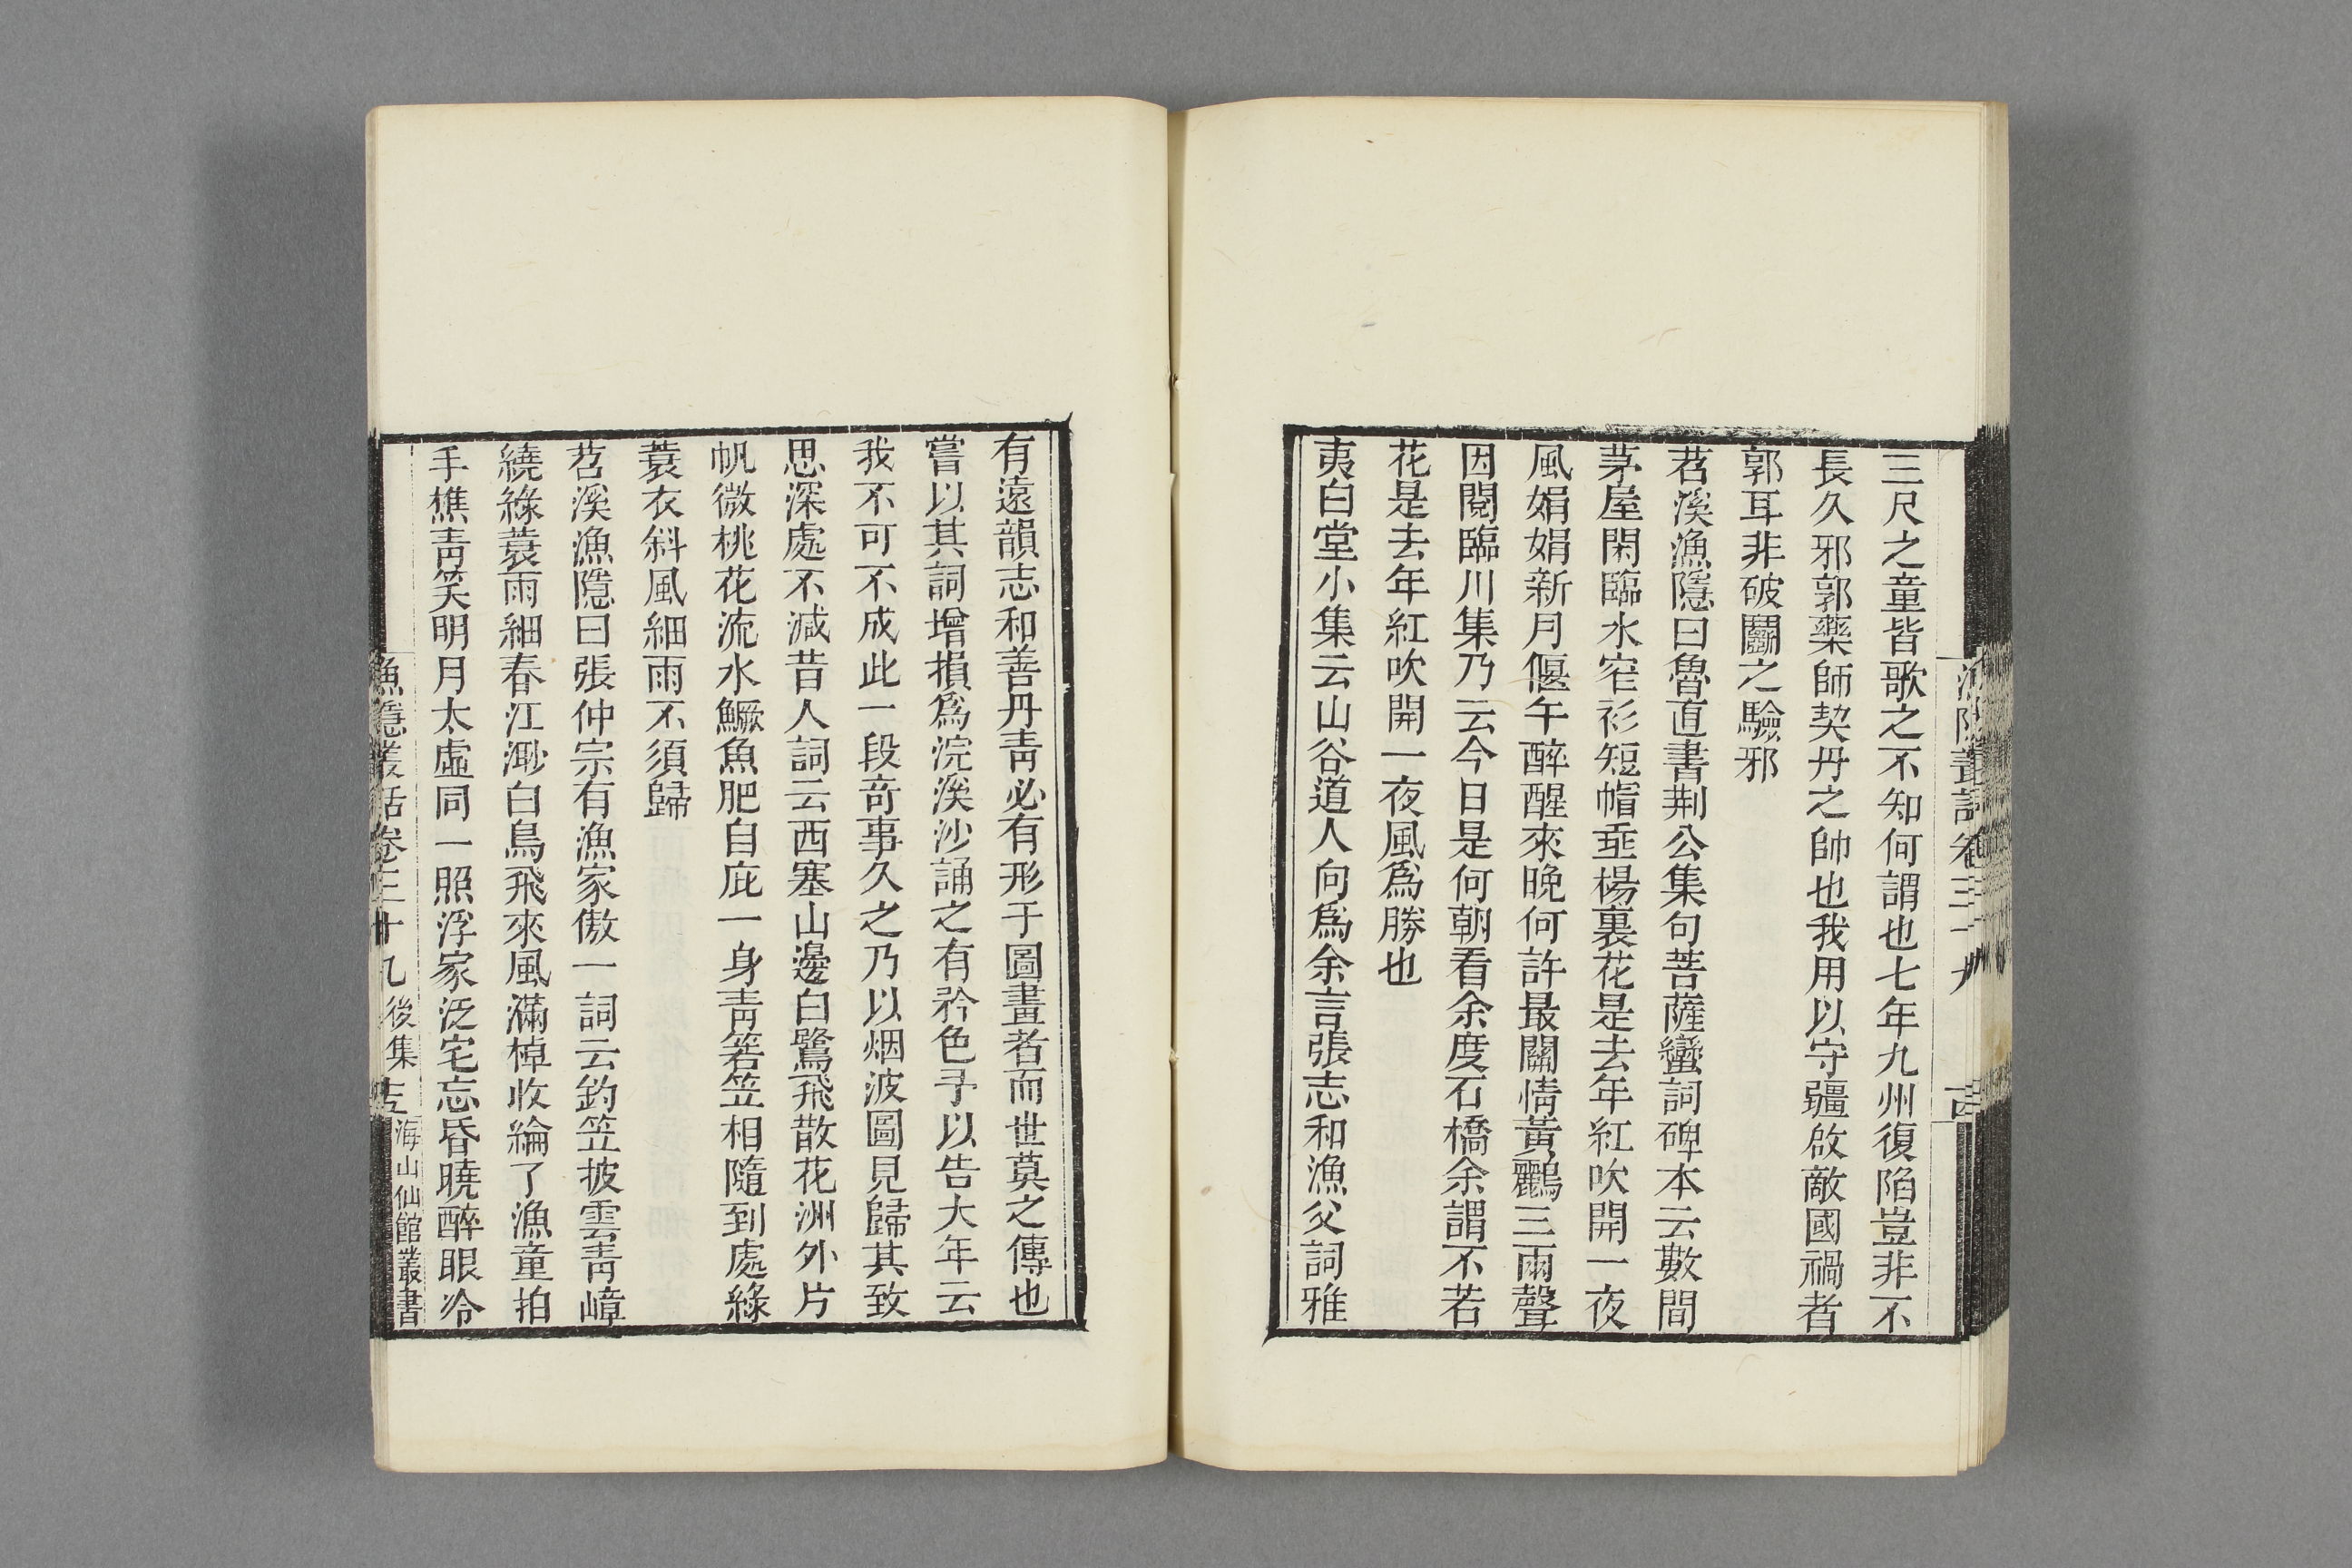 三尺之童皆歌之不知何謂也七年九州復陷豈非不
長久邪郭藥師契丹之帥也我用以守疆啟敵國禍者
郭耳非破關之驗邪
苕溪漁隱曰魯直書荆公集句菩薩蠻詞碑本云數間
茅屋閑臨水窄衫短帽垂楊裏花是去年紅吹開一夜
風娟娟新月偃午醉醒來晚何許最關情黃鸝三兩聲
因閱臨川集乃云今日是何朝看余度石橋余謂不若
花是去年紅吹開一夜風爲勝也
夷白堂小集云山谷道人向爲余言張志和漁父詞雅
有遠韻志和善丹靑必有形于圖畫者而世莫之傳也
嘗以其詞增損爲浣溪沙誦之有矜色予以告大年云
我不可不成此一段奇事久之乃以烟波圖見歸其致
思深處不減昔人詞云西塞山邊白鷺飛散花洲外片
帆微桃花流水鱖魚肥自庇一身靑箬笠相隨到處綠
蓑衣斜風細雨不須歸
苕溪漁隱曰張仲宗有漁家傲一詞云釣笠披雲靑嶂
繞綠蓑雨細春江渺白鳥飛來風滿棹收綸了漁童拍
手樵靑笑明月太虛同一照浮家泛宅忘昏曉醉眼冷
漁隱叢話卷三十九 後集 十五 海山仙館叢書